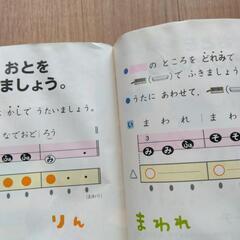 おとを
ましょう。
かしで うたいましょう。
なでおど ろう
ふぁ ふぁ み
(まわり)
りん
の ところを どれみで
で ふきましょう。
うたに あわせて、
い まわれ まわ
3
み み ふぁ そ そ
まわれ